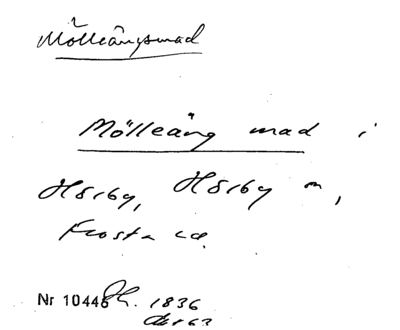 Mölleängsmad
Mölleäng mad i
Hörby, Hörby sn,
Frosta hd.
Nr 10446 1836